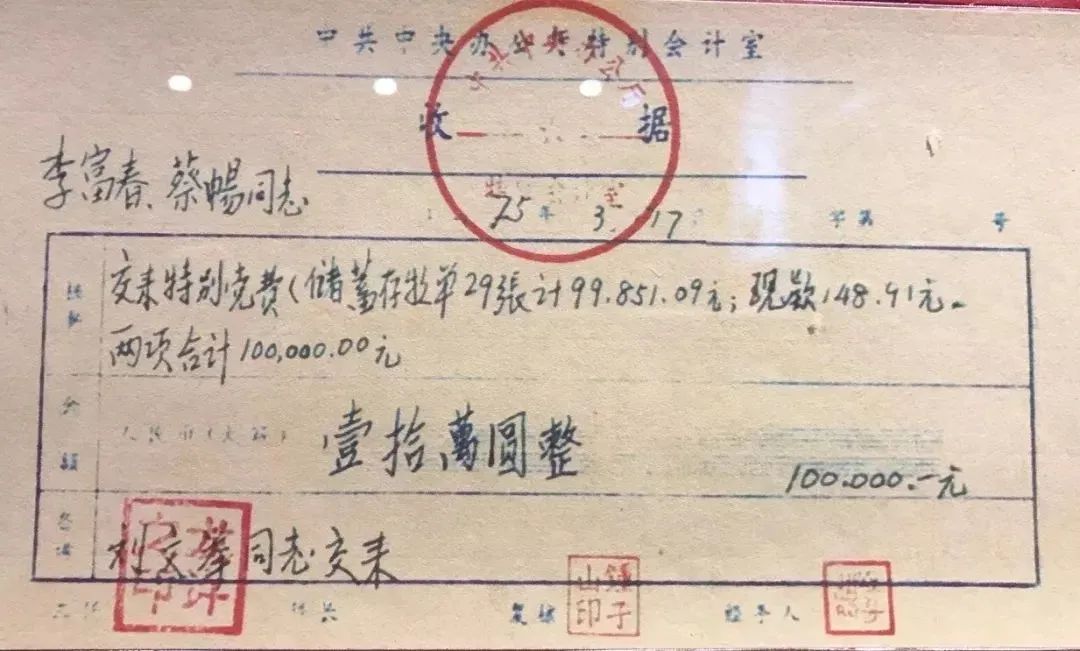 中共中央办公厅特别会计室
收据
李富春、蔡暢同志
75年3 17
字第 号
交来特别党费(储蓄存款单29張计99.851.09元;现款148.91元。
两项合计100,000.00元
金额
人民币(大写) 壹拾萬圓整
100.000.一元
备注
同志交来
复核
山印
经手人